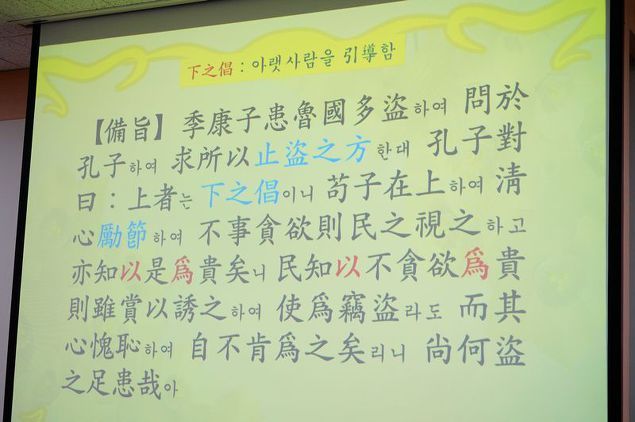 下之倡 : 아랫사람을 引導함
【備旨】 季康子患魯國多盜하여 問於
孔子하여 求所以止盜之方한대 孔子對
曰 : 上者는 下之倡이니 苟子在上하여 淸
心勵節하여 不事貪欲則民之視之하고
亦知以是爲貴矣니 民知以不貪欲爲貴
則雖賞以誘之하여 使爲竊盜라도 而其
心愧恥하여 自不肯爲之矣리니 尙何盜
之足患哉아